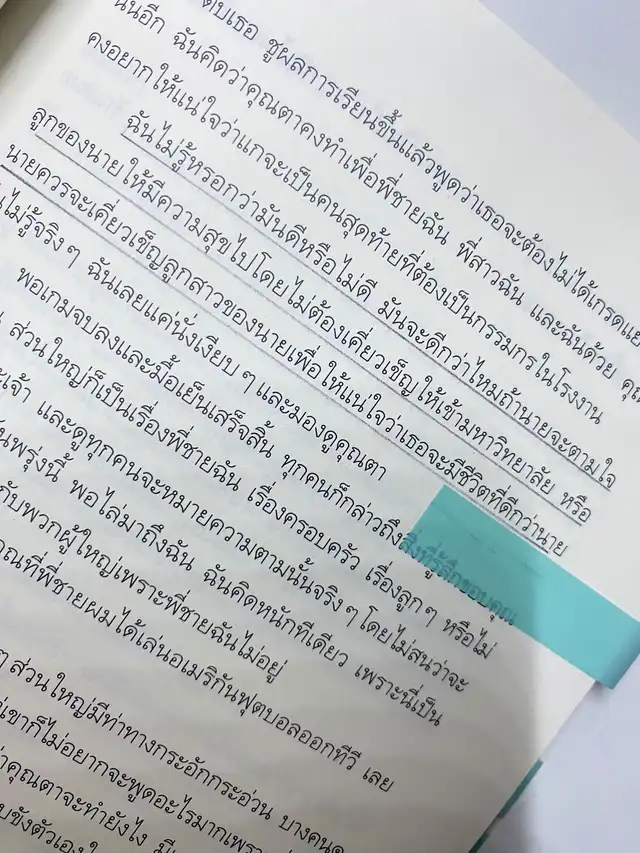 ตบเธอ ชูผลการเรียนขึ้นแล้วพูดว่าเธอจะต้องไม่ได้เกรดแย่
นั้นอีก ฉันคิดว่าคุณตาคงทำเพื่อพี่ชายฉัน พี่สาวฉัน และฉันด้วย
คงอยากให้แน่ใจว่าแกจะเป็นคนสุดท้ายที่ต้องเป็นกรรมกรในโรงงาน
ฉันไม่รู้หรอกว่ามันดีหรือไม่ดี มันจะดีกว่าไหมถ้านายจะตามใจ
ลูกของนายให้มีความสุขไปโดยไม่ต้องเคี่ยวเข็ญให้เข้ามหาวิทยาลัย หรือ
นายควรจะเคี่ยวเข็ญลูกสาวของนายเพื่อให้แน่ใจว่าเธอจะมีชีวิตที่ดีกว่านาย
ไม่รู้จริงๆ ฉันเลยแค่นั่งเงียบๆ และมองดูคุณตา
พอเกมจบลงและมื้อเย็นเสร็จสิ้น ทุกคนก็กล่าวถึงสิ่งที่รู้สึกขอบคุณ
ส่วนใหญ่ก็เป็นเรื่องพี่ชายฉัน เรื่องครอบครัว เรื่องลูกๆ หรือไม่
เจ้า และดูทุกคนจะหมายความตามนั้นจริงๆ โดยไม่สนว่าจะ
พรุ่งนี้ พอไล่มาถึงฉัน ฉันคิดหนักทีเดียว เพราะนี่เป็น
กับพวกผู้ใหญ่เพราะพี่ชายฉันไม่อยู่
ที่พี่ชายผมได้เล่นอเมริกันฟุตบอลออกทีวี เลย
ๆ ส่วนใหญ่มีท่าทางกระอักกระอ่วน บางคน
เขาก็ไม่อยากจะพูดอะไรมากเพราะ
คุณตาจะทำยังไง
ขังตัวเอง